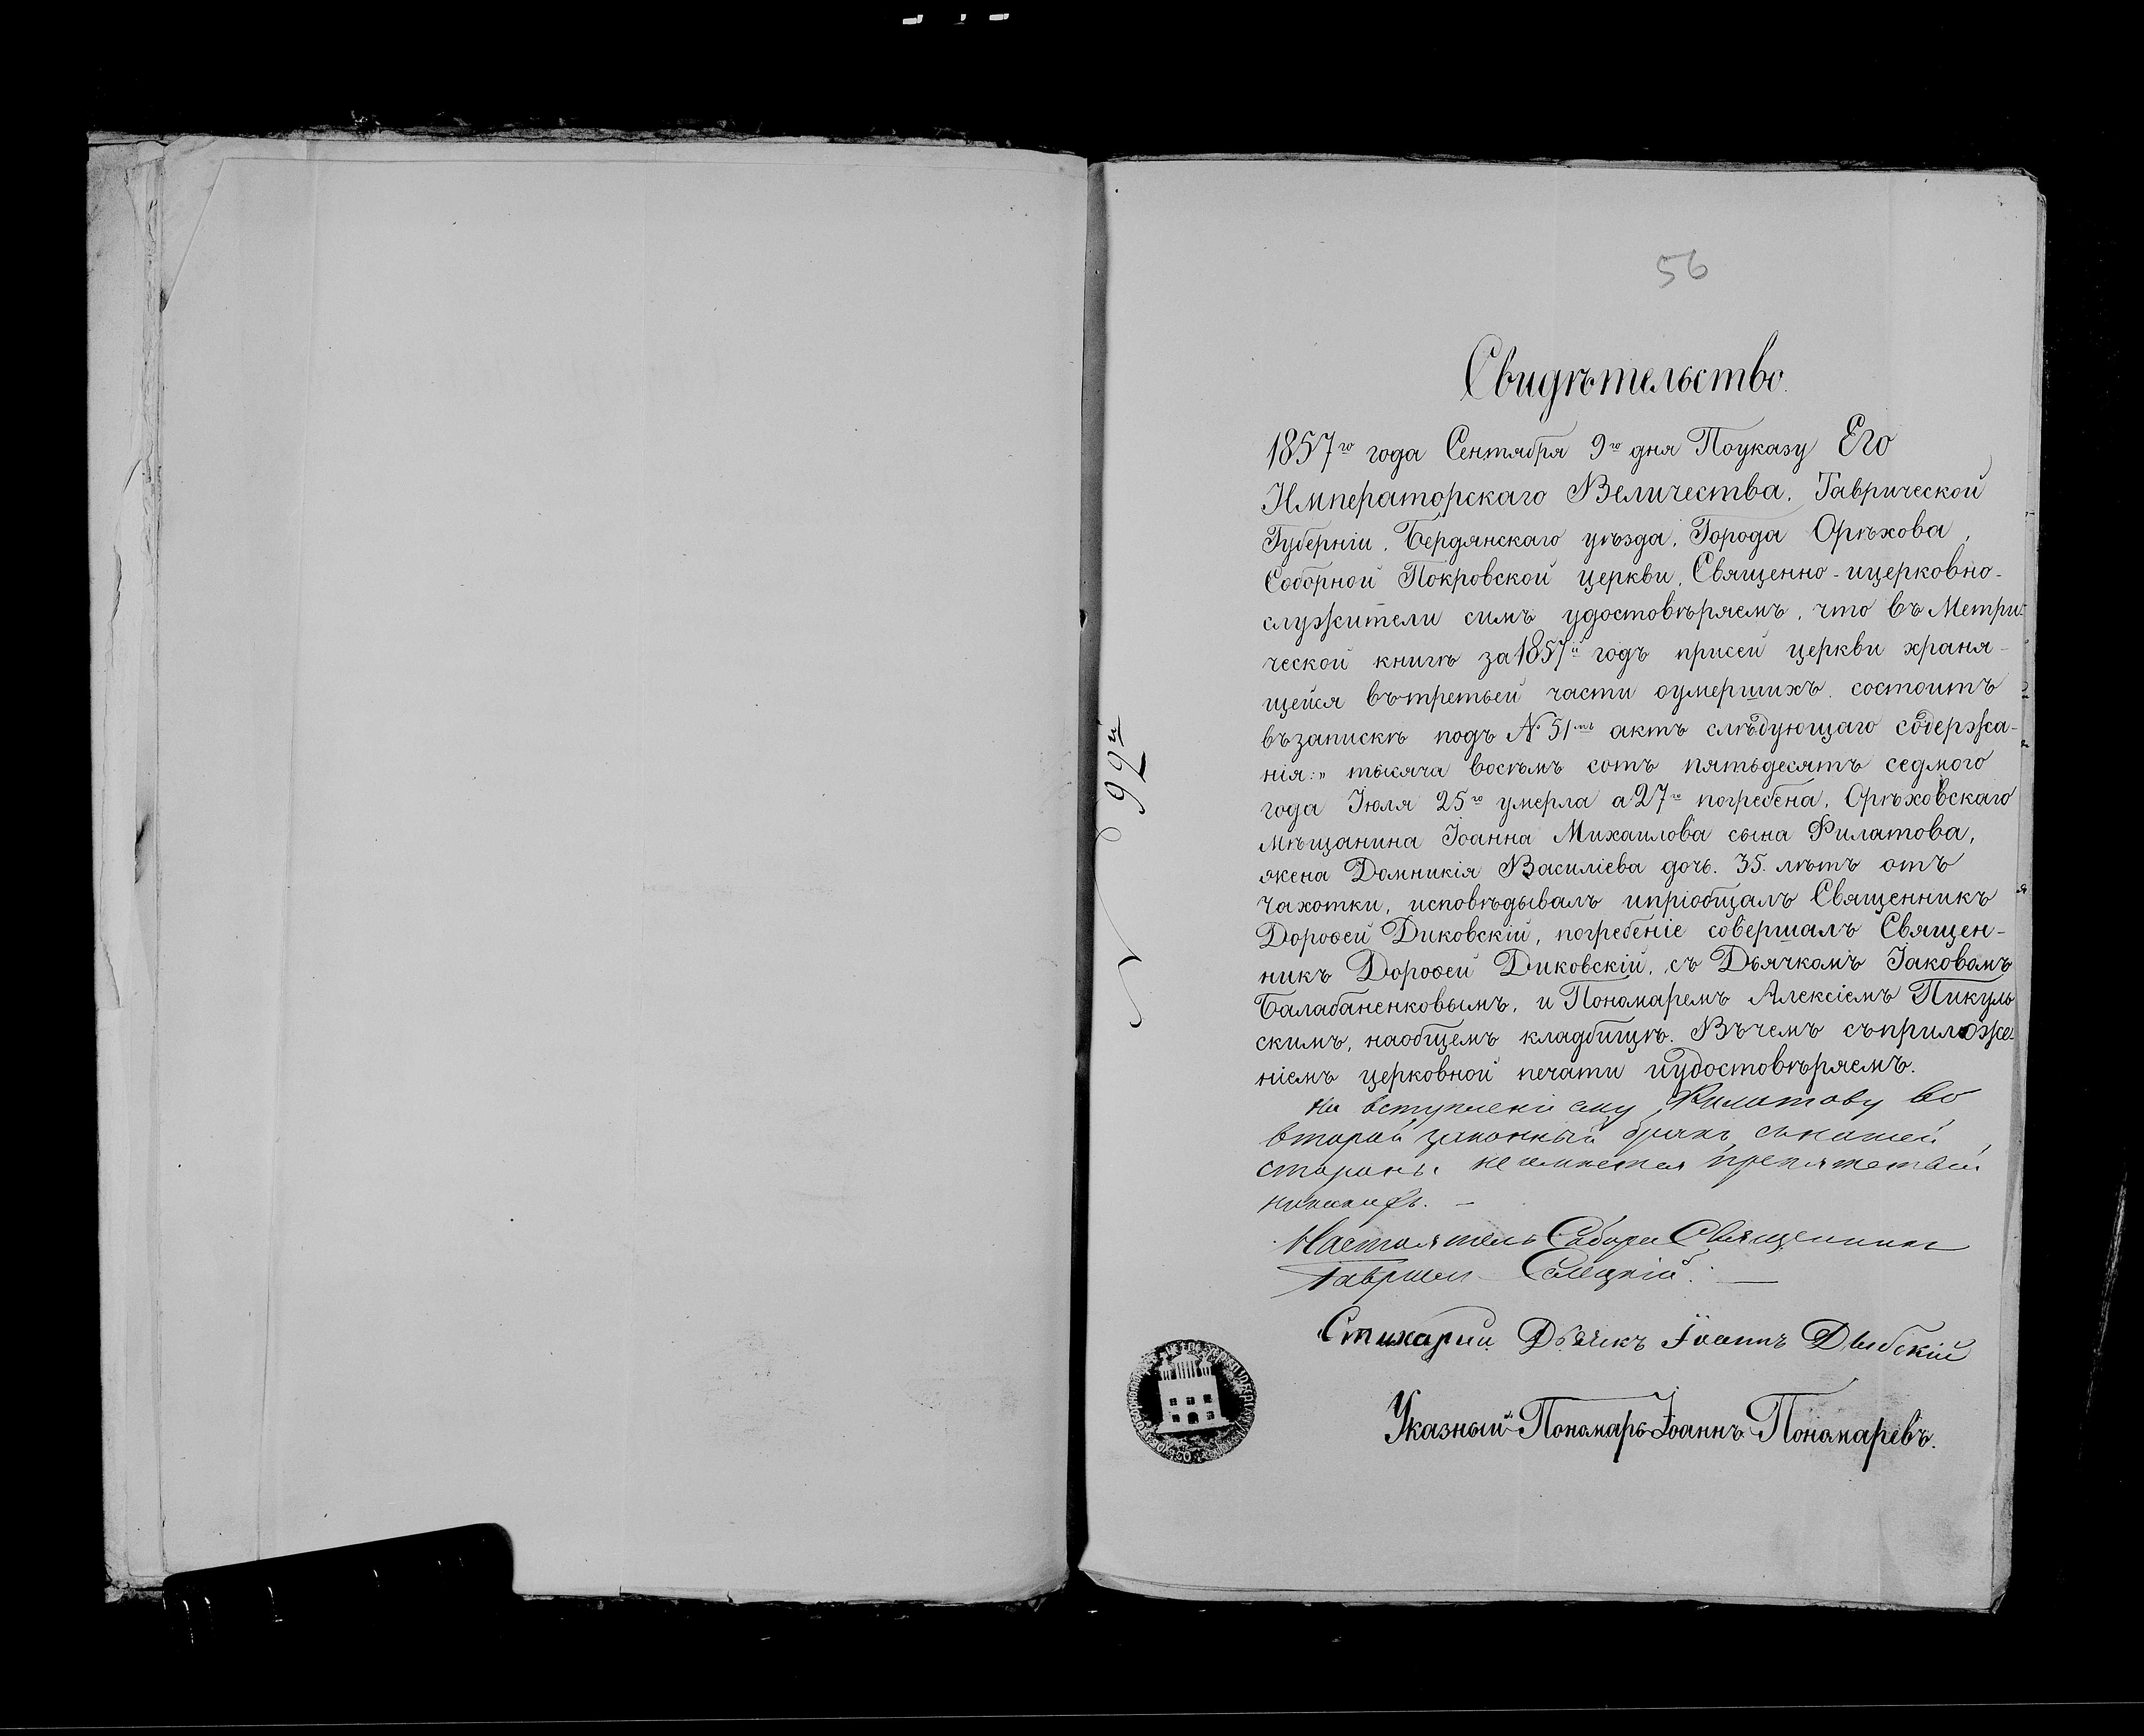 56
Свидѣтельство.
1857го года Сентября 9го дня Поуказу Его
Императорскаго Величества. Таврической
Губерніи. Бердянскаго уѣзда. Города Орѣхова,
Соборной Покровской церкви, Священно-ицерковно-
служители симъ удостовѣряемъ, что въ Метри-
ческой книгѣ за 1857й годъ присей церкви храня-
щейся вътретьей части оумершихъ состоитъ
възапискѣ подъ № 51мъ актъ слѣдующаго содержа-
нія:" тысяча восѣмъ сотъ пятьдесятъ седмого
года Іюля 25го умерла а 27го погребена, Орѣховскаго
Мѣщанина Іоанна Михаилова сына Филатова,
жена Домникія Василіева дочь. 35. лѣтъ отъ
Чахотки, исповѣдывалъ ипріобщалъ Священникъ
Дороѳей Диковскій, погребеніе совершалъ Священ-
никъ Дороѳей Диковскій, съ Дьячкомъ Іаковомъ
Балабаненковымъ, и Пономаремъ Алексіемъ Пикуль
скимъ, наобщемъ кладбищѣ. Въчемъ съприложе-
ніемъ церковной печати иудостовѣряемъ.
На вступленіе ему Филатову во
второй законный бракъ, снашей
стороны неимѣется препятствій
никакихъ. –
Настоятель Собора Священникъ
Гавріилъ
Стихарный Дьячекъ Іоаннъ Дыбскій
Указный Пономарь Іоаннъ Пономаревъ.
N 992й